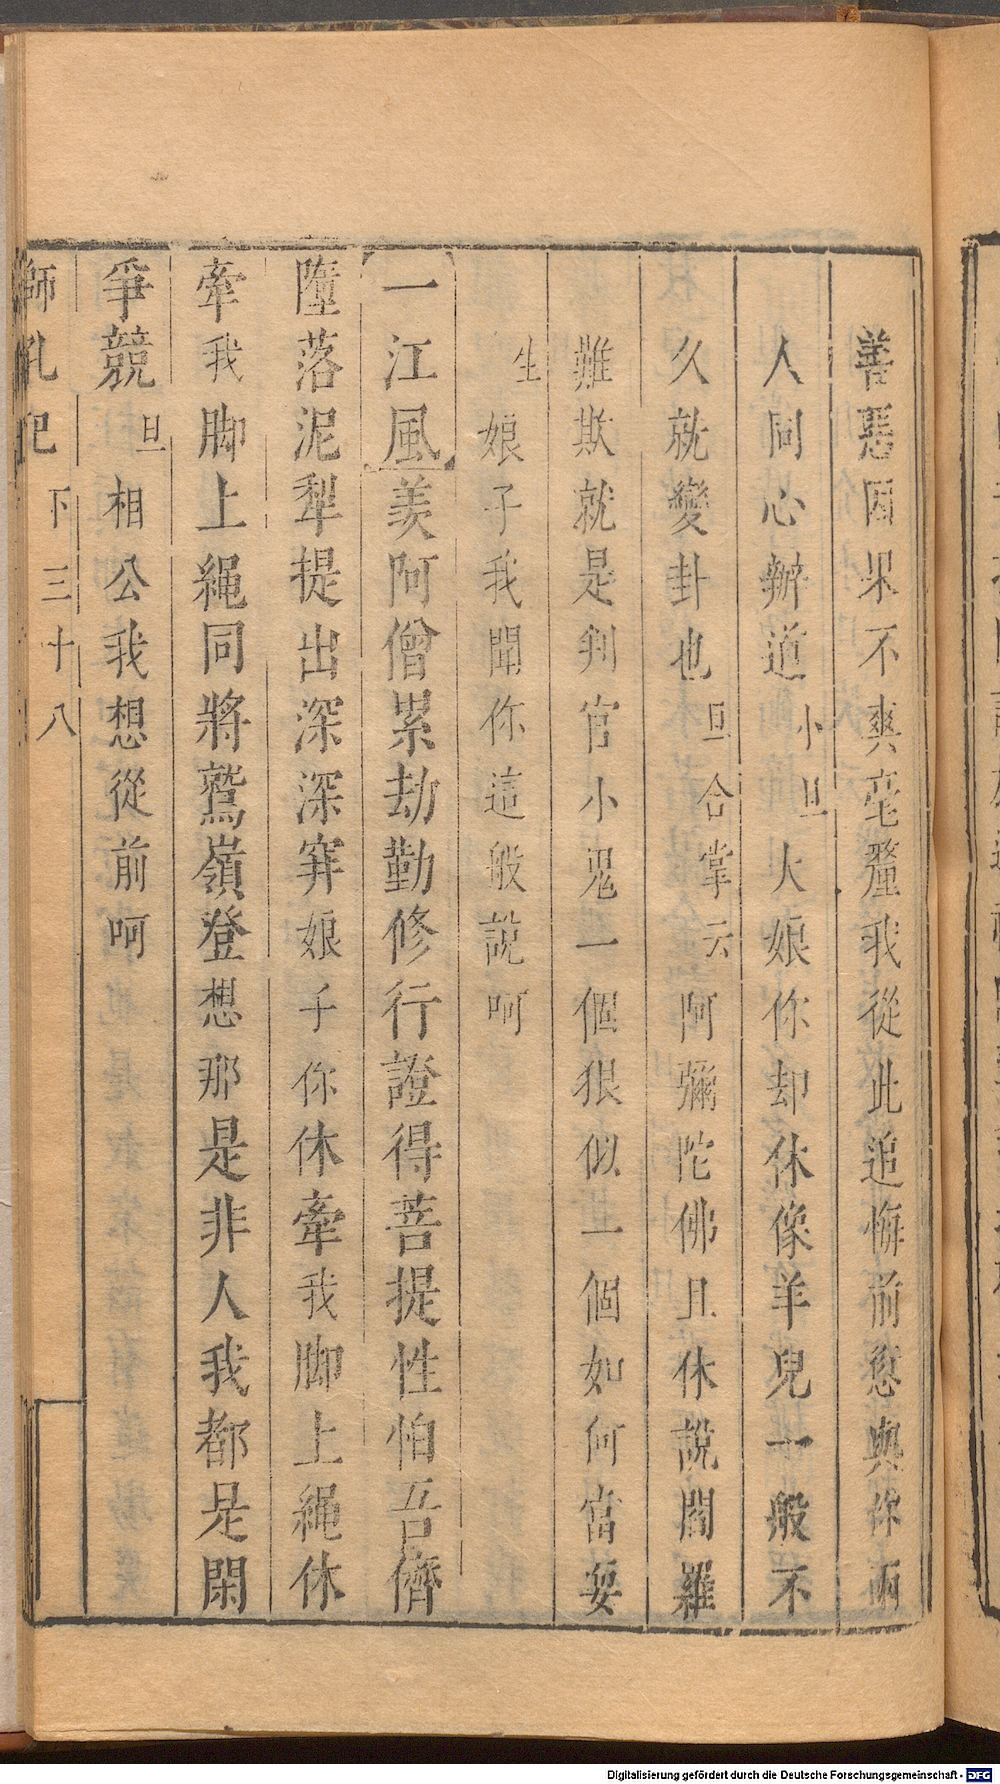 善惡因果不爽毫釐我從此追悔前愆與你兩
人同心辦道小旦大娘你却休像羊兒一般不
久就變卦也旦合掌云阿彌陀佛且休說閻羅
難欺就是判官小鬼一個狠似一個如何當耍
生娘子我聞你這般說呵
一江風羨阿僧累劫勤修行證得菩提性怕吾儕
墮落泥犁提出深深穽娘子你休牽我脚上繩休
牽我脚上繩同將鷲嶺登想那是非人我都是閑
爭競旦相公我想從前呵
師孔巴 下 三十八
Digitalisierung gefördert durch die Deutsche Forschungsgemeinschaft - DFG